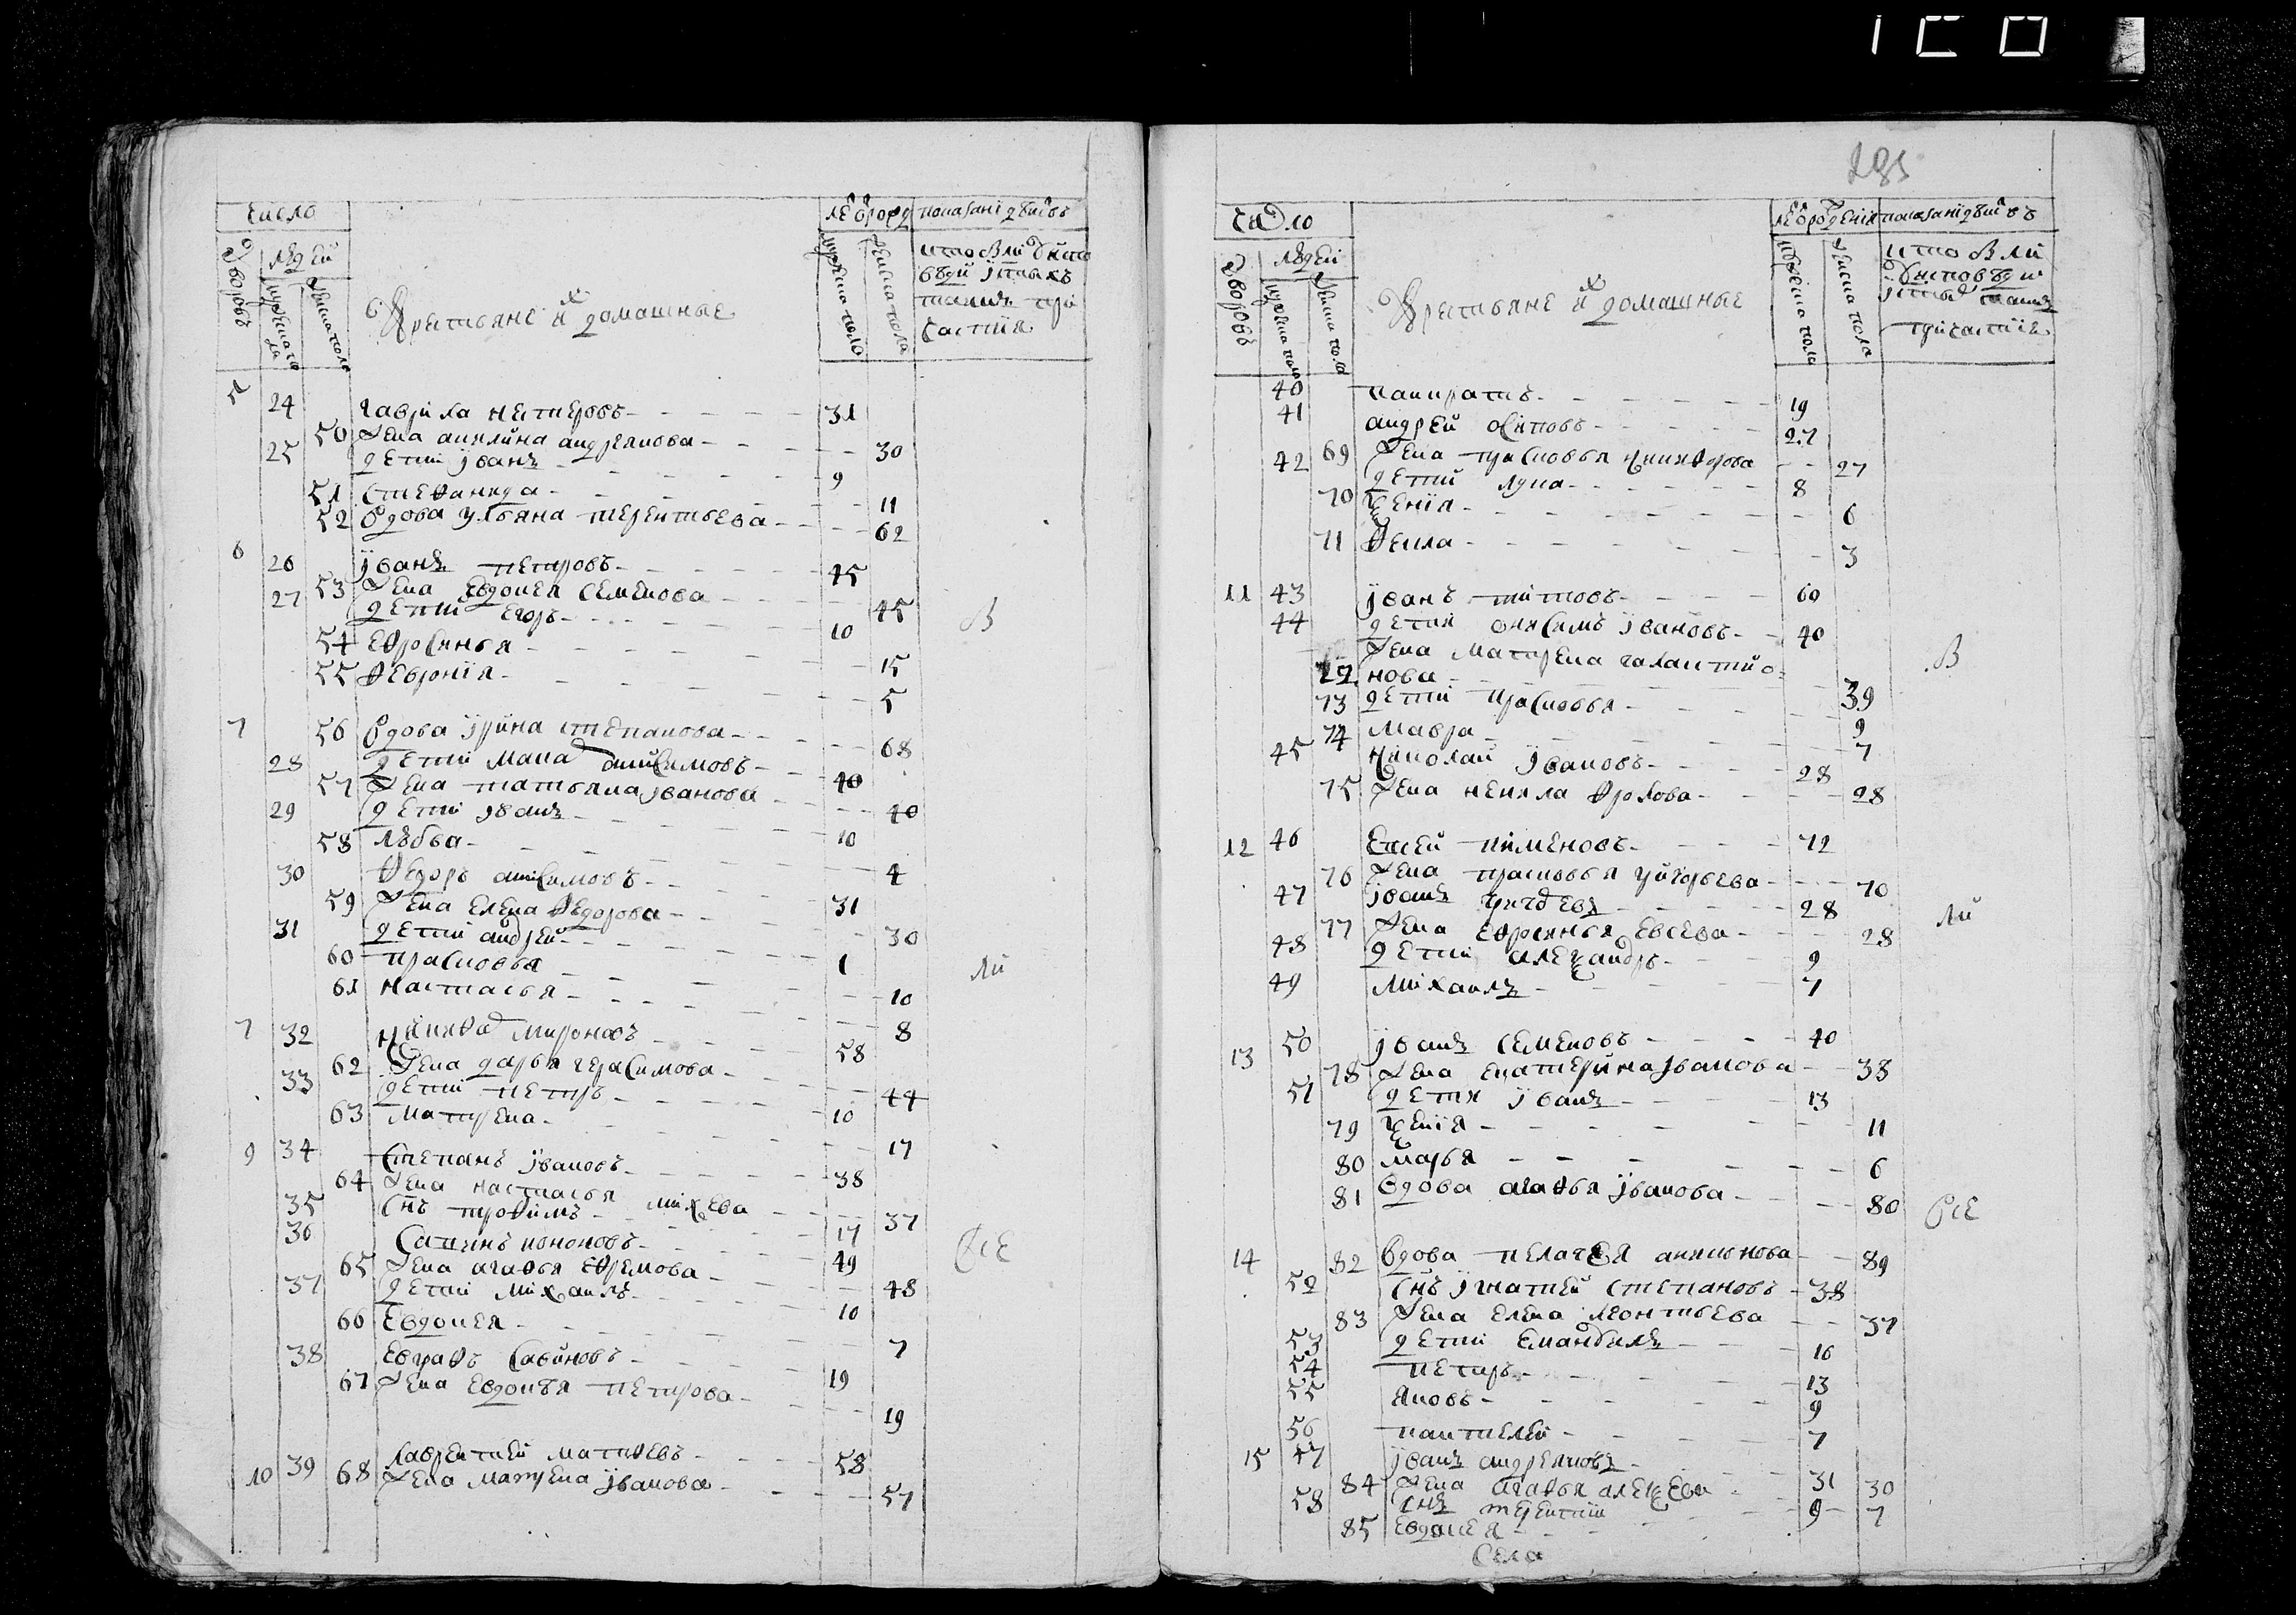 число
лѣ о рожд
показанїе дѣйств
дворовъ
людей
мужеска пола
женска пола
Крестьяне и ихъ домашные
мужеска пола
женска пола
кто были
у исповѣди и святыхъ
таинъ при
частїя
5 24 гаврила нестеровъ 31
50 жена акилина андреянова 30
25 дети iванъ 9
51 степанида 11
52 вдова ульяна терентьева 62
6 26 iванъ петровъ 45
53 жена евдокея семенова 45
27 дети егоръ 10
54 ефросинья 15
55 феврония 5
В
7 56 вдова iрина степанова 68
28 дети анисимовъ 40
57 жена татьяна iванова 40
29 дети iванъ 10
58 любва 4
30 федоръ анисимовъ 31
59 жена елена федорова 30
31 дети андрей 1
60 прасковья 10
61 настасья 8
ли
7 32 никифа мироновъ 58
62 жена дарья герасимова 44
33 дети петръ 10
63 матрена 17
9 34 степанъ iвановъ 38
64 жена настасья михеева 37
35 снъ трофимъ 17
36 кононовъ 49
65 жена агафья ефремова 48
37 дети михаилъ 10
66 евдокея 7
38 евграфъ савиновъ 19
67 жена евдокея петрова 19
все
10 39 лаврентей матфевъ 58
68 жена матрена iванова 57
285
число
лѣ о рожденiя
показанiе дѣйств
дворовъ
людей
мужеска пола
женска пола
Крестьяне и ихъ домашные
мужеска пола
женска пола
кто были
у исповѣди и
святыхъ таинъ
причастїя
40 панкратъ 19
41 андрей осиповъ 27
69 жена прасковья никифорова 27
42 дети лука 8
70 ксенiя 6
71 фекла 3
11 43 iванъ титовъ 60
44 дети онисимъ iвановъ 40
жена матрена галактио
72 нова 39
73 дети прасковья 9
74 мавра 7
45 николай iвановъ 28
75 жена ненила фролова 28
В
12 46 евсей пименовъ 72
76 жена прасковья григорьева 70
47 iванъ 28
77 жена ефросинья евсева 28
48 дети александръ 9
49 михаилъ 7
ли
13 50 iванъ семеновъ 40
78 жена екатерина iванова 38
51 дети iванъ 13
79 ксенiя 11
80 марья 6
81 вдова агафья iванова 80
все
14 82 вдова пелагея 89
52 снъ iгнатей степановъ 38
83 жена елена леонтьева 37
53 дети емануилъ 16
54 петръ 13
55 яковъ 9
56 пантелей 7
15 47 iванъ андреяновъ 31
84 жена агафья алексева 30
58 снъ терентий 9
85 евдокея 7
села